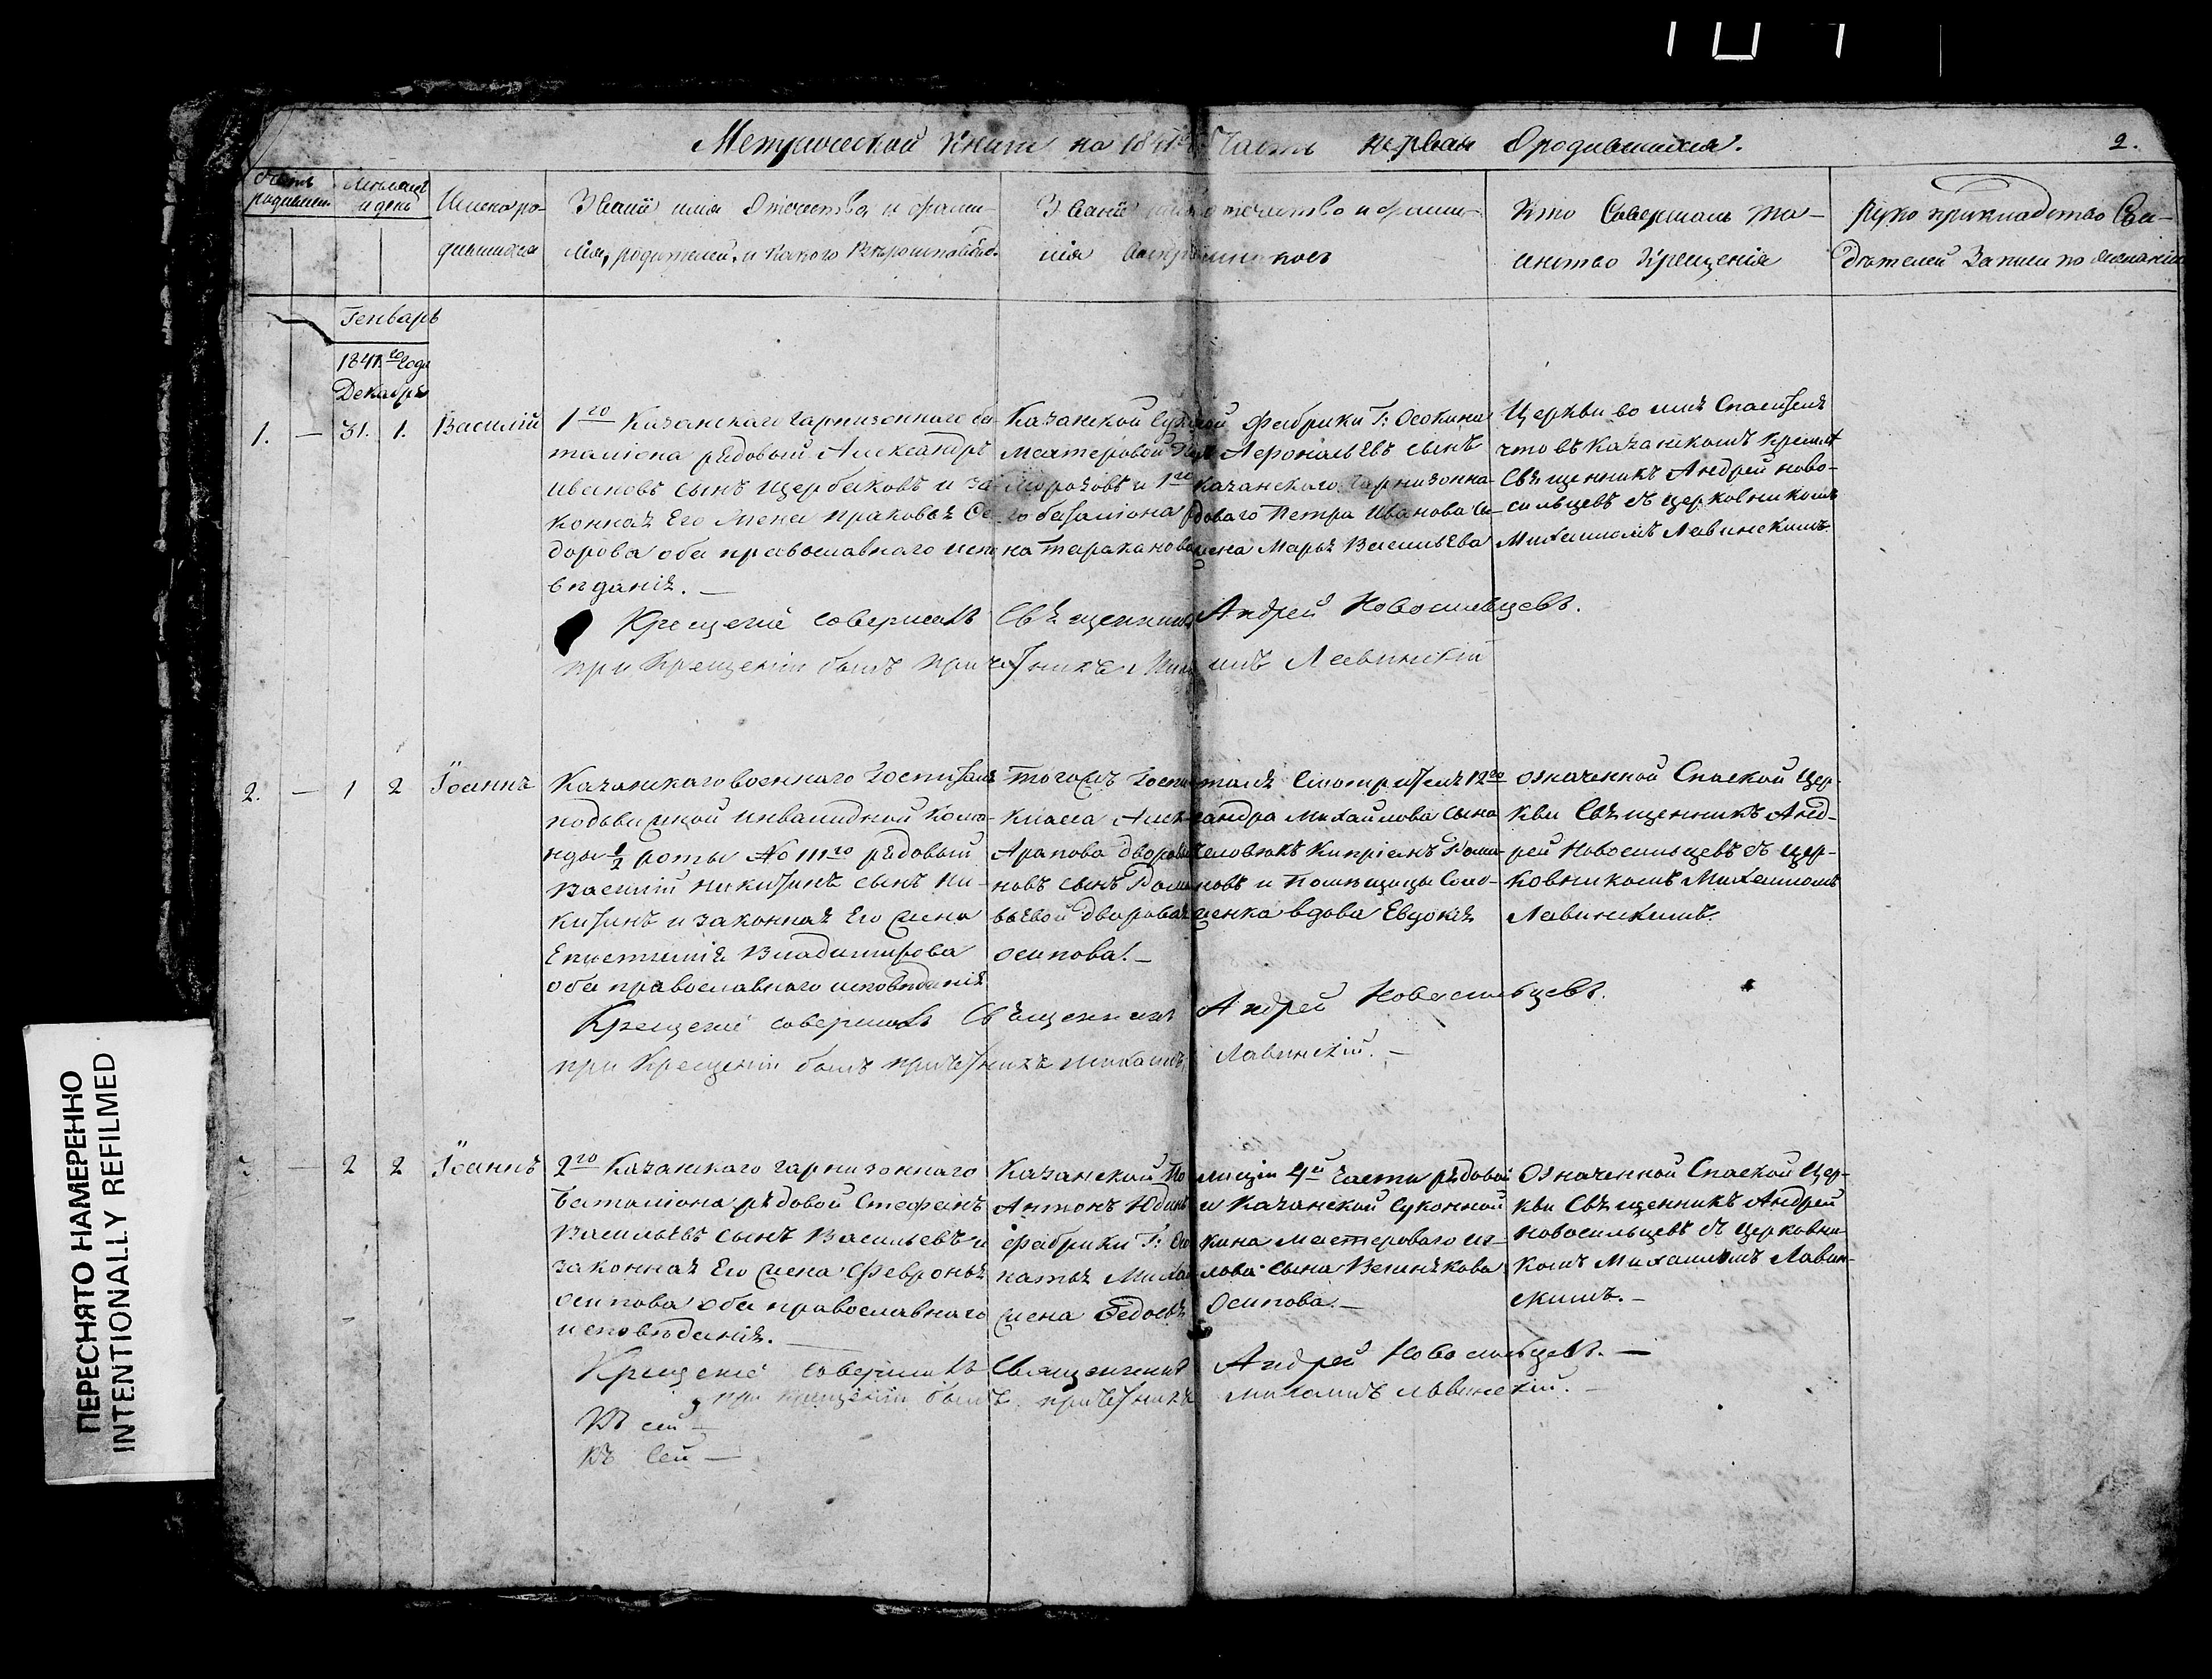 Метрической Книги на 18 Часть первая О родившихся. 2.
Счетъ родившихся
Месяцъ и день
Имена родившихся
Званіе имя Отечество и фами-
лія, родителей, и Какого Вероисповеда.
Званіе имя отечество и фами-
лія воспріемниковъ
Кто Совершалъ Та-
инство Крещенія
Рукоприкладство Сви-
дѣтелей Записи по желанію
Генварь
1841.го года
Декабрь
1. — 31. 1. Василій
1го Казанскаго гарнизоннаго ба
таліона рядовый Александръ
ивановъ сынъ щербаковъ и за-
конная Его жена праковья Се
дорова оба православнаго испо
вѣданія. —
Казанской Суконной Фабрики Г: Осокина
мастеровой Аѳонасьевъ сынъ
Морозовъ и 1го казанскаго гарнизонна-
го баталіона рядоваго Петра Иванова сы-
на тараканова жена Марья Васильева
Церкви во имя Спасителя
что въ Казанскомъ Кремлѣ
Священникъ Андрей ново-
сильцевъ съ церковникомъ
Михаиломъ Лавинскимъ.
Крещеніе совершалъ Священникъ Андрей Новосильцевъ.
при Крещеніи былъ причетникъ Михаилъ Лавинскій
2. — 1 2 Іоаннъ
Казанскаго военнаго Госпиталя
подвижной инвалидной кома-
нды ½ роты No 111го рядовый
Василій никитинъ сынъ Ни-
китинъ и законная Его жена
Епистимія Владимирова
оба православнаго исповѣданія
тогожъ Госпиталя Смотрителя 12го
класса Александра Михайлова сына
Арапова дворовый человѣкъ Кипріанъ Рома-
новъ сынъ Романовъ и помѣщицы Соло-
вьевой дворовая женка вдова Евдокія
осипова. —
означенной Спаской Цер-
кви Священникъ Анд-
рей Новосильцевъ съ цер-
ковникомъ Михаиломъ
Лавинскимъ.
Крещеніе совершалъ Священникъ Андрей Новосильцевъ.
при Крещеніи былъ причетникъ Михаилъ Лавинскій. —
— 2 2 Іоаннъ
2го Казанскаго гарнизоннаго
баталіона рядовой Стефанъ
Васильевъ сынъ Васильевъ и
законная Его жена Февронья
осипова оба православнаго
исповѣданія. —
Казанской Полиціи 4й части рядовой
Антонъ Юдинъ и Казанской Суконной
фабрики Г: Осокина мастероваго иг-
натья Михайлова сына Веснякова
жена Ѳедосья Осипова. —
Означенной Спаской Цер-
кви Священникъ Андрей
новосильцевъ съ церковни-
комъ Михаиломъ Лавин-
скимъ. —
Крещеніе совершалъ Священникъ Андрей Новосильцевъ. —
при крещеніи былъ причетникъ Михаилъ Лавинскій. —
Къ сей —
къ сей —
ПЕРЕСНЯТО НАМЕРЕННО
INTENTIONALLY REFILMED